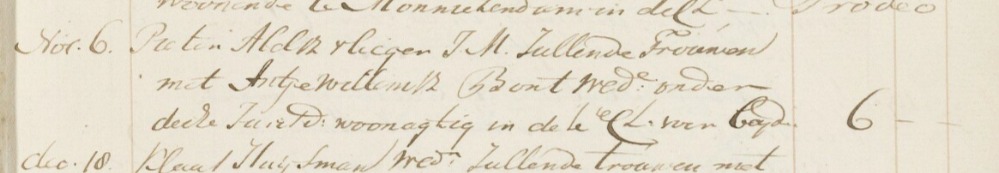 woonende te Monnickendam in de Cl — Prodeo
Nov. 6. Pieter Aldsz vlieger J.M. Zullende Trouwen
met Antje Willemsz Bont Wed:e onder
deese Juresd: woonagtig in de Cl. van 6 - -
dec. 18. Klaas Huijsman Wed:r Zullende trouwen met